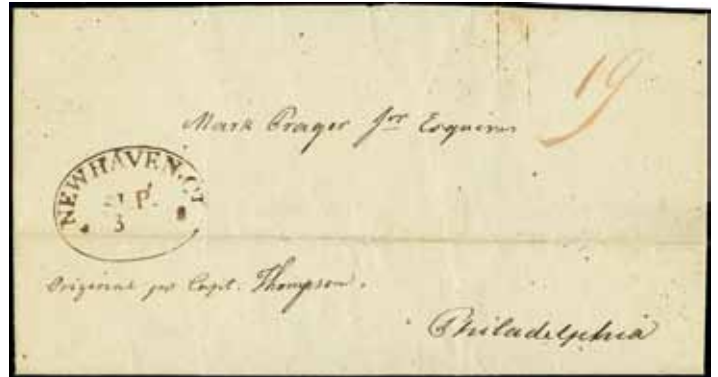 19
Mark Prager Jnr Esquire
NEWHAVEN.CT
3
Original pr Capt. Thompson.
Philadelphia